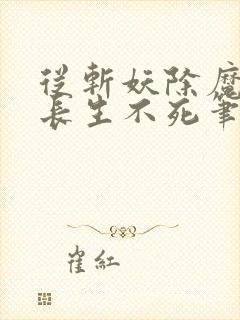 從斬妖除魔
長生不死筆
崔紅